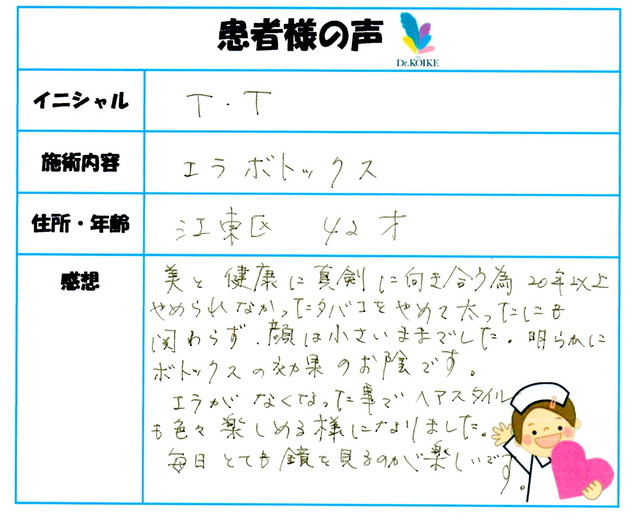 患者様の声
Dr.KOIKE
イニシャル T.T
施術内容 エラボトックス
住所・年齢 江東区 42才
感想
美と健康に真剣に向き合う為 20年以上
やめられなかったタバコをやめて太ったにも
関わらず、顔は小さいままでした。明らかに
ボトックスの効果のお陰です。
エラがなくなった事でヘアスタイル
も色々楽しめる様になりました。
毎日とても鏡を見るのが楽しいです。